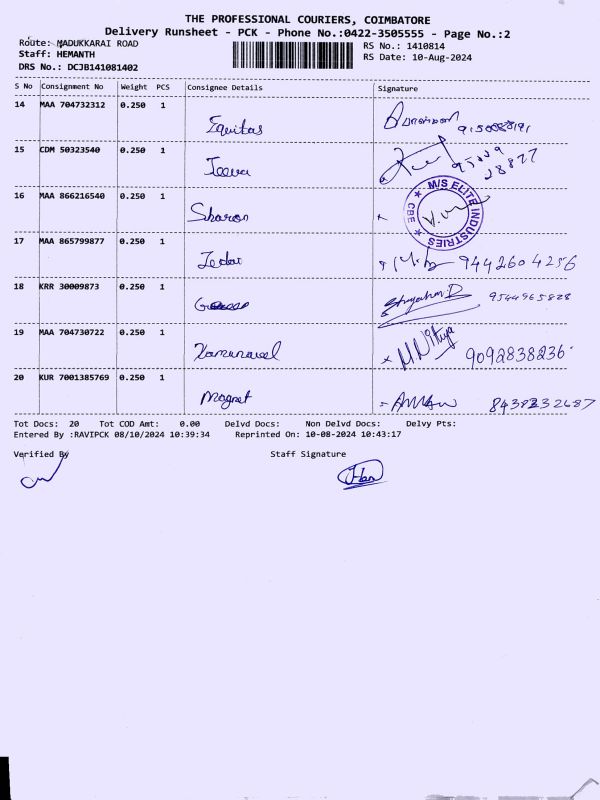 THE PROFESSIONAL COURIERS, COIMBATORE
Delivery Runsheet - PCK - Phone No.:0422-3505555 - Page No.:2
Route: MADUKKARAI ROAD
Staff: HEMANTH
DRS No.: DCJB141081402
RS No.: 1410814
RS Date: 10-Aug-2024
S No Consignment No Weight PCS Consignee Details Signature
14 MAA 704732312 0.250 1 Equitas
15 CDM 50323540 0.250 1 Jeeva
16 MAA 866216540 0.250 1 Sharon
M/S ELITE INDUSTRIES ★ CBE ★
17 MAA 865799877 0.250 1 9442604256
18 KRR 30009873 0.250 1 9544965828
19 MAA 704730722 0.250 1 9092838236
20 KUR 7001385769 0.250 1 Magnet
Tot Docs: 20 Tot COD Amt: 0.00 Delvd Docs: Non Delvd Docs: Delvy Pts:
Entered By :RAVIPCK 08/10/2024 10:39:34 Reprinted On: 10-08-2024 10:43:17
Verified By Staff Signature